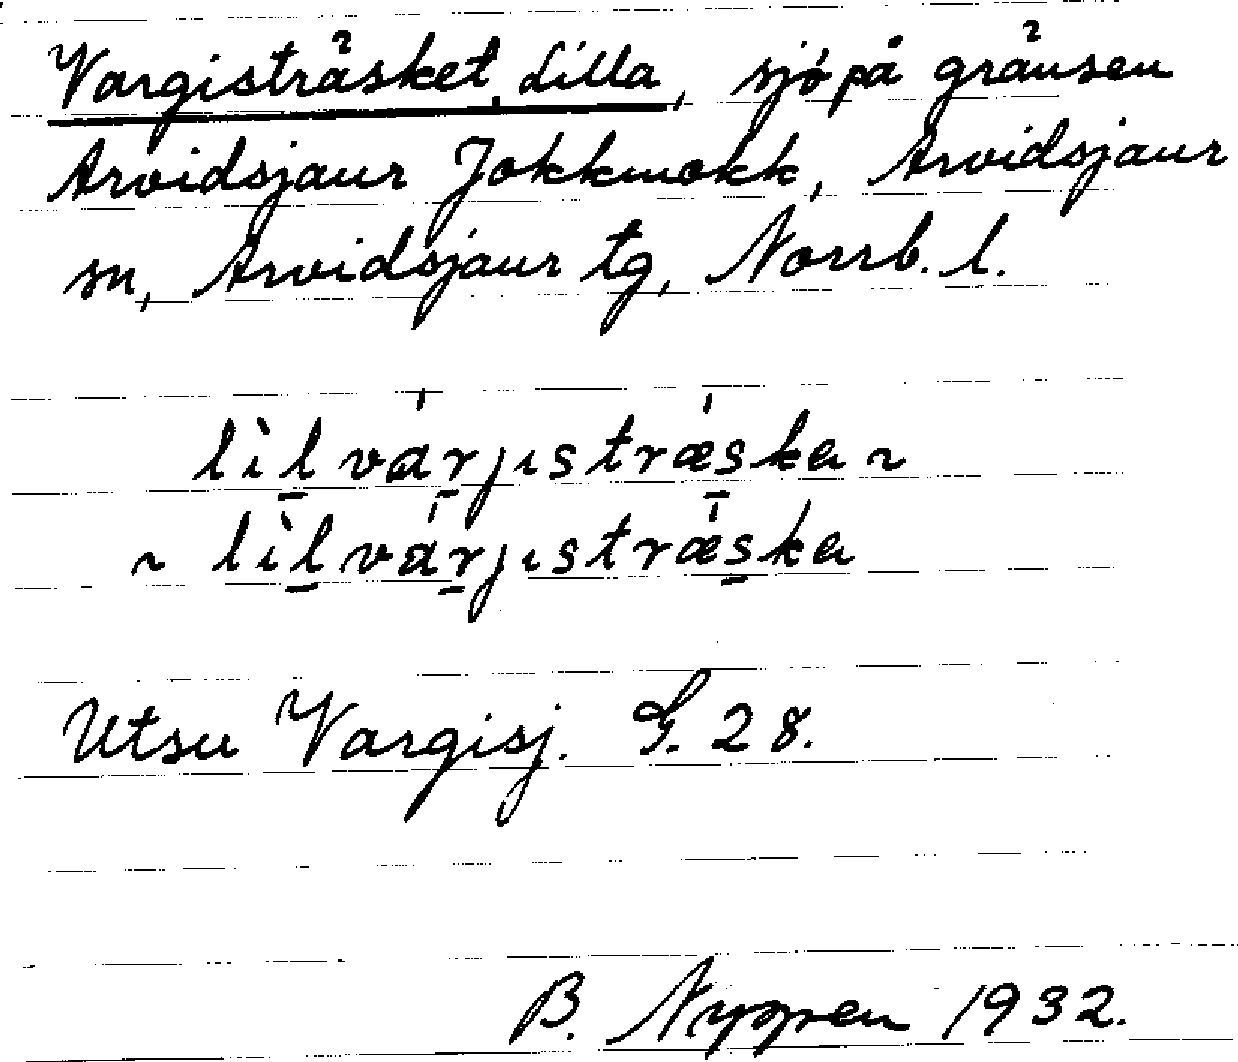 Vargisträsket, Lilla, sjö på gränsen
Arvidsjaur Jokkmokk, Arvidsjaur
sn, Arvidsjaur tg, Norrb. l.
lìl várjıstrǽska ~
~ lìl várjıstrǽska
Utsu Vargisj. G. 28.
B. Nyppen 1932.